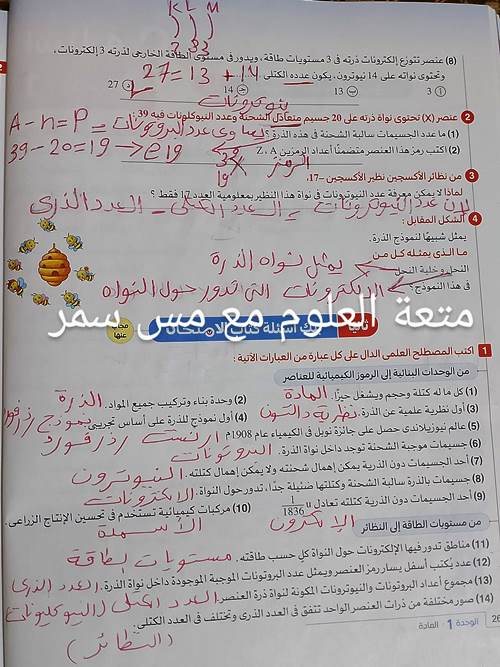 K L M
2 8 3
(8) عنصر تتوزع إلكترونات ذرته فى 3 مستويات طاقة، ويدور فى مستوى الطاقة الخارجى لذرته 3 إلكترونات،
وتحتوى نواته على 14 نيوترون، يكون عدده الكتلى
27 = 13 + 14
أ 3 ب 13 ج 14 د 27
2 عنصر (X) تحتوى نواة ذرته على 20 جسيم متعادل الشحنة وعدد النيوكلونات فيه 39:
(1) ما عدد الجسيمات سالبة الشحنة في هذه الذرة ؟ يساوى عدد البروتونات = A - n = P
(2) اكتب رمز هذا العنصر متضمنًا أعداد الرمزين A ، Z
39 - 20 = 19 → e 19
الرمز 39 X 19
3 من نظائر الأكسجين نظير الأكسجين -17،
لماذا لا يمكن معرفة عدد النيوترونات في نواة هذا النظير بمعلومية العدد 17 فقط ؟
لان عدد النيوترونات = العدد الكتلى - العدد الذرى
4 الشكل المقابل :
يمثل شبيهًا لنموذج الذرة.
ما الذى يمثله كل من
النحل وخلية النحل
فى هذا النموذج؟
يمثل نواه الذرة
الالكترونات التى تدور حول النواه
متعة العلوم مع مس سمر
ثانيًا بنك أسئلة كتاب الامتحان
مجاب عنها
1 اكتب المصطلح العلمى الدال على كل عبارة من العبارات الآتية :
من الوحدات البنائية إلى الرموز الكيميائية للعناصر
(1) كل ما له كتلة وحجم ويشغل حيزًا. المادة
(2) وحدة بناء وتركيب جميع المواد. الذرة
(3) أول نظرية علمية عن الذرة. نظرية دالتون
(4) أول نموذج للذرة على أساس تجريبى. نموذج رذرفورد
(5) عالم نيوزيلاندى حصل على جائزة نوبل في الكيمياء عام 1908م ارنست رذرفورد
(6) جسيمات موجبة الشحنة توجد داخل نواة الذرة. البروتونات
(7) أحد الجسيمات دون الذرية يمكن إهمال شحنته ولا يمكن إهمال كتلته. النيوترون
(8) جسيمات بالذرة سالبة الشحنة وكتلتها ضئيلة جدًا، تدور حول النواة. الالكترونات
(9) أحد الجسيمات دون الذرية كتلته تعادل 1/1836 u الالكترون
(10) مركبات كيميائية تستخدم في تحسين الإنتاج الزراعى. الأسمدة
من مستويات الطاقة إلى النظائر
(11) مناطق تدور فيها الإلكترونات حول النواة كل حسب طاقته. مستويات الطاقة
(12) عدد يُكتب أسفل يسار رمز العنصر ويمثل عدد البروتونات الموجبة الموجودة داخل نواة الذرة. العدد الذرى
(13) مجموع أعداد البروتونات والنيوترونات المكونة لنواة ذرة العنصر. العدد الكتلى (النيوكليونات)
(14) صور مختلفة من ذرات العنصر الواحد تتفق في العدد الذرى وتختلف فى العدد الكتلى.
(النظائر)
26 الوحدة 1 - المادة